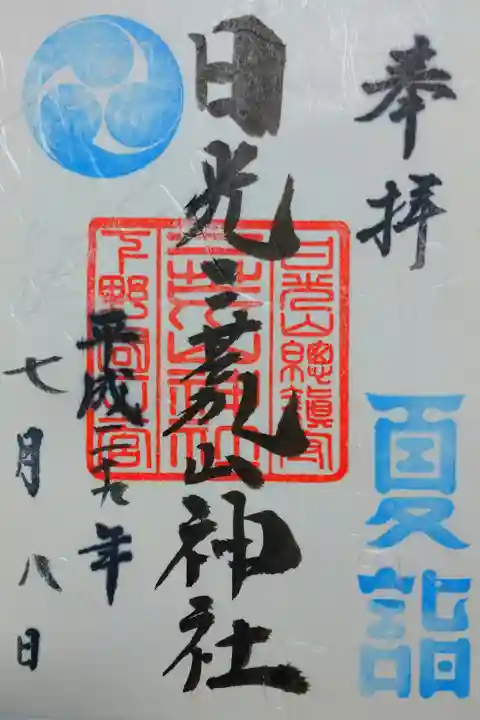 奉拝
夏詣
日光二荒山神社
日光山總鎮守
二荒山神社
下野國一宮
平成二十九年
七月八日